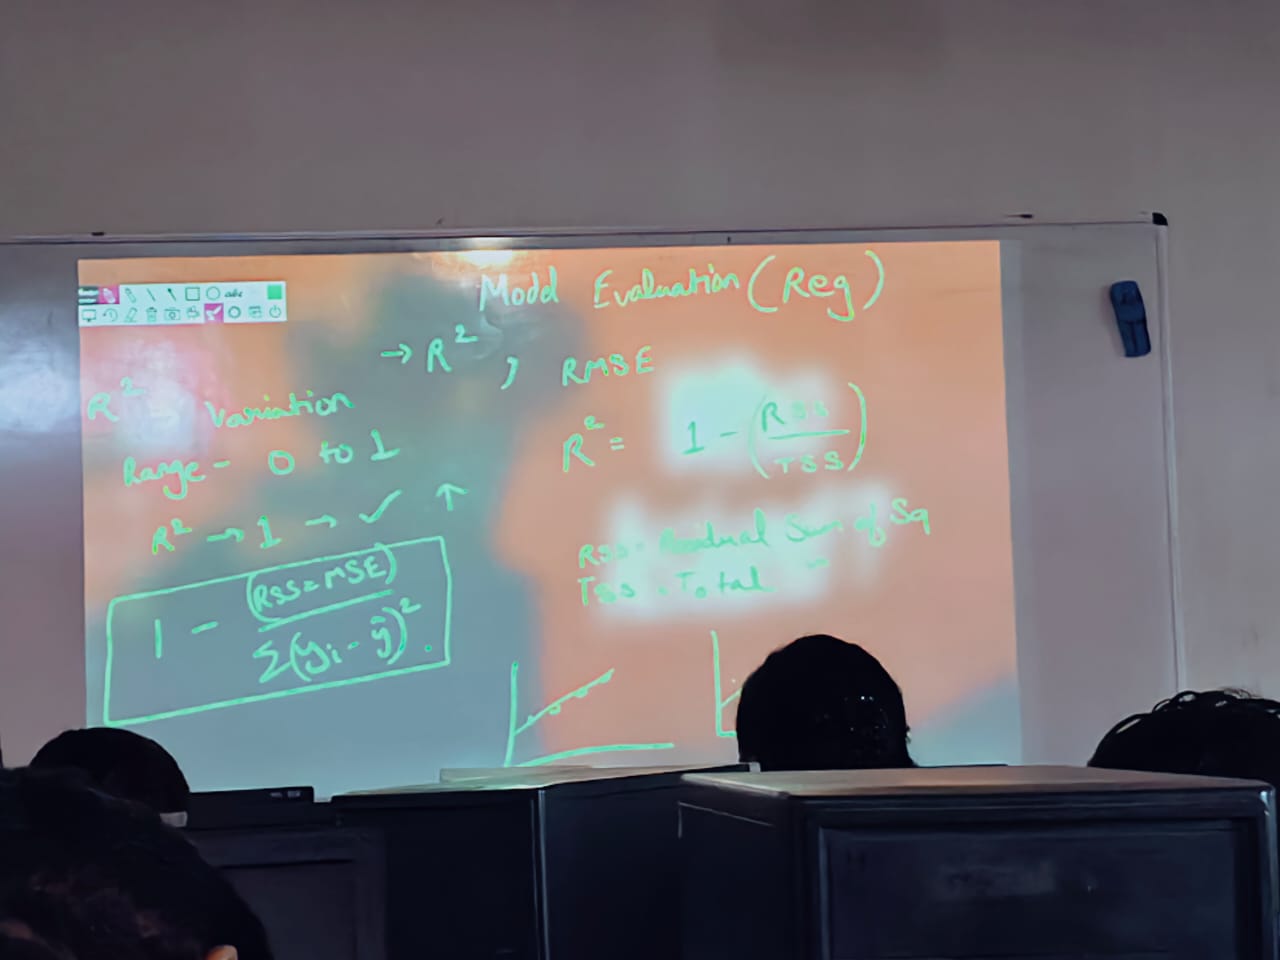 Model Evaluation (Reg)
→ R², RMSE
R² → Variation
Range - 0 to 1
R² → 1 → ✓ ↑
1 - (RSS = MSE) / Σ(yi - ȳ)².
R² = 1 - (RSS / TSS)
RSS - Residual Sum of Sq
TSS - Total "
abc